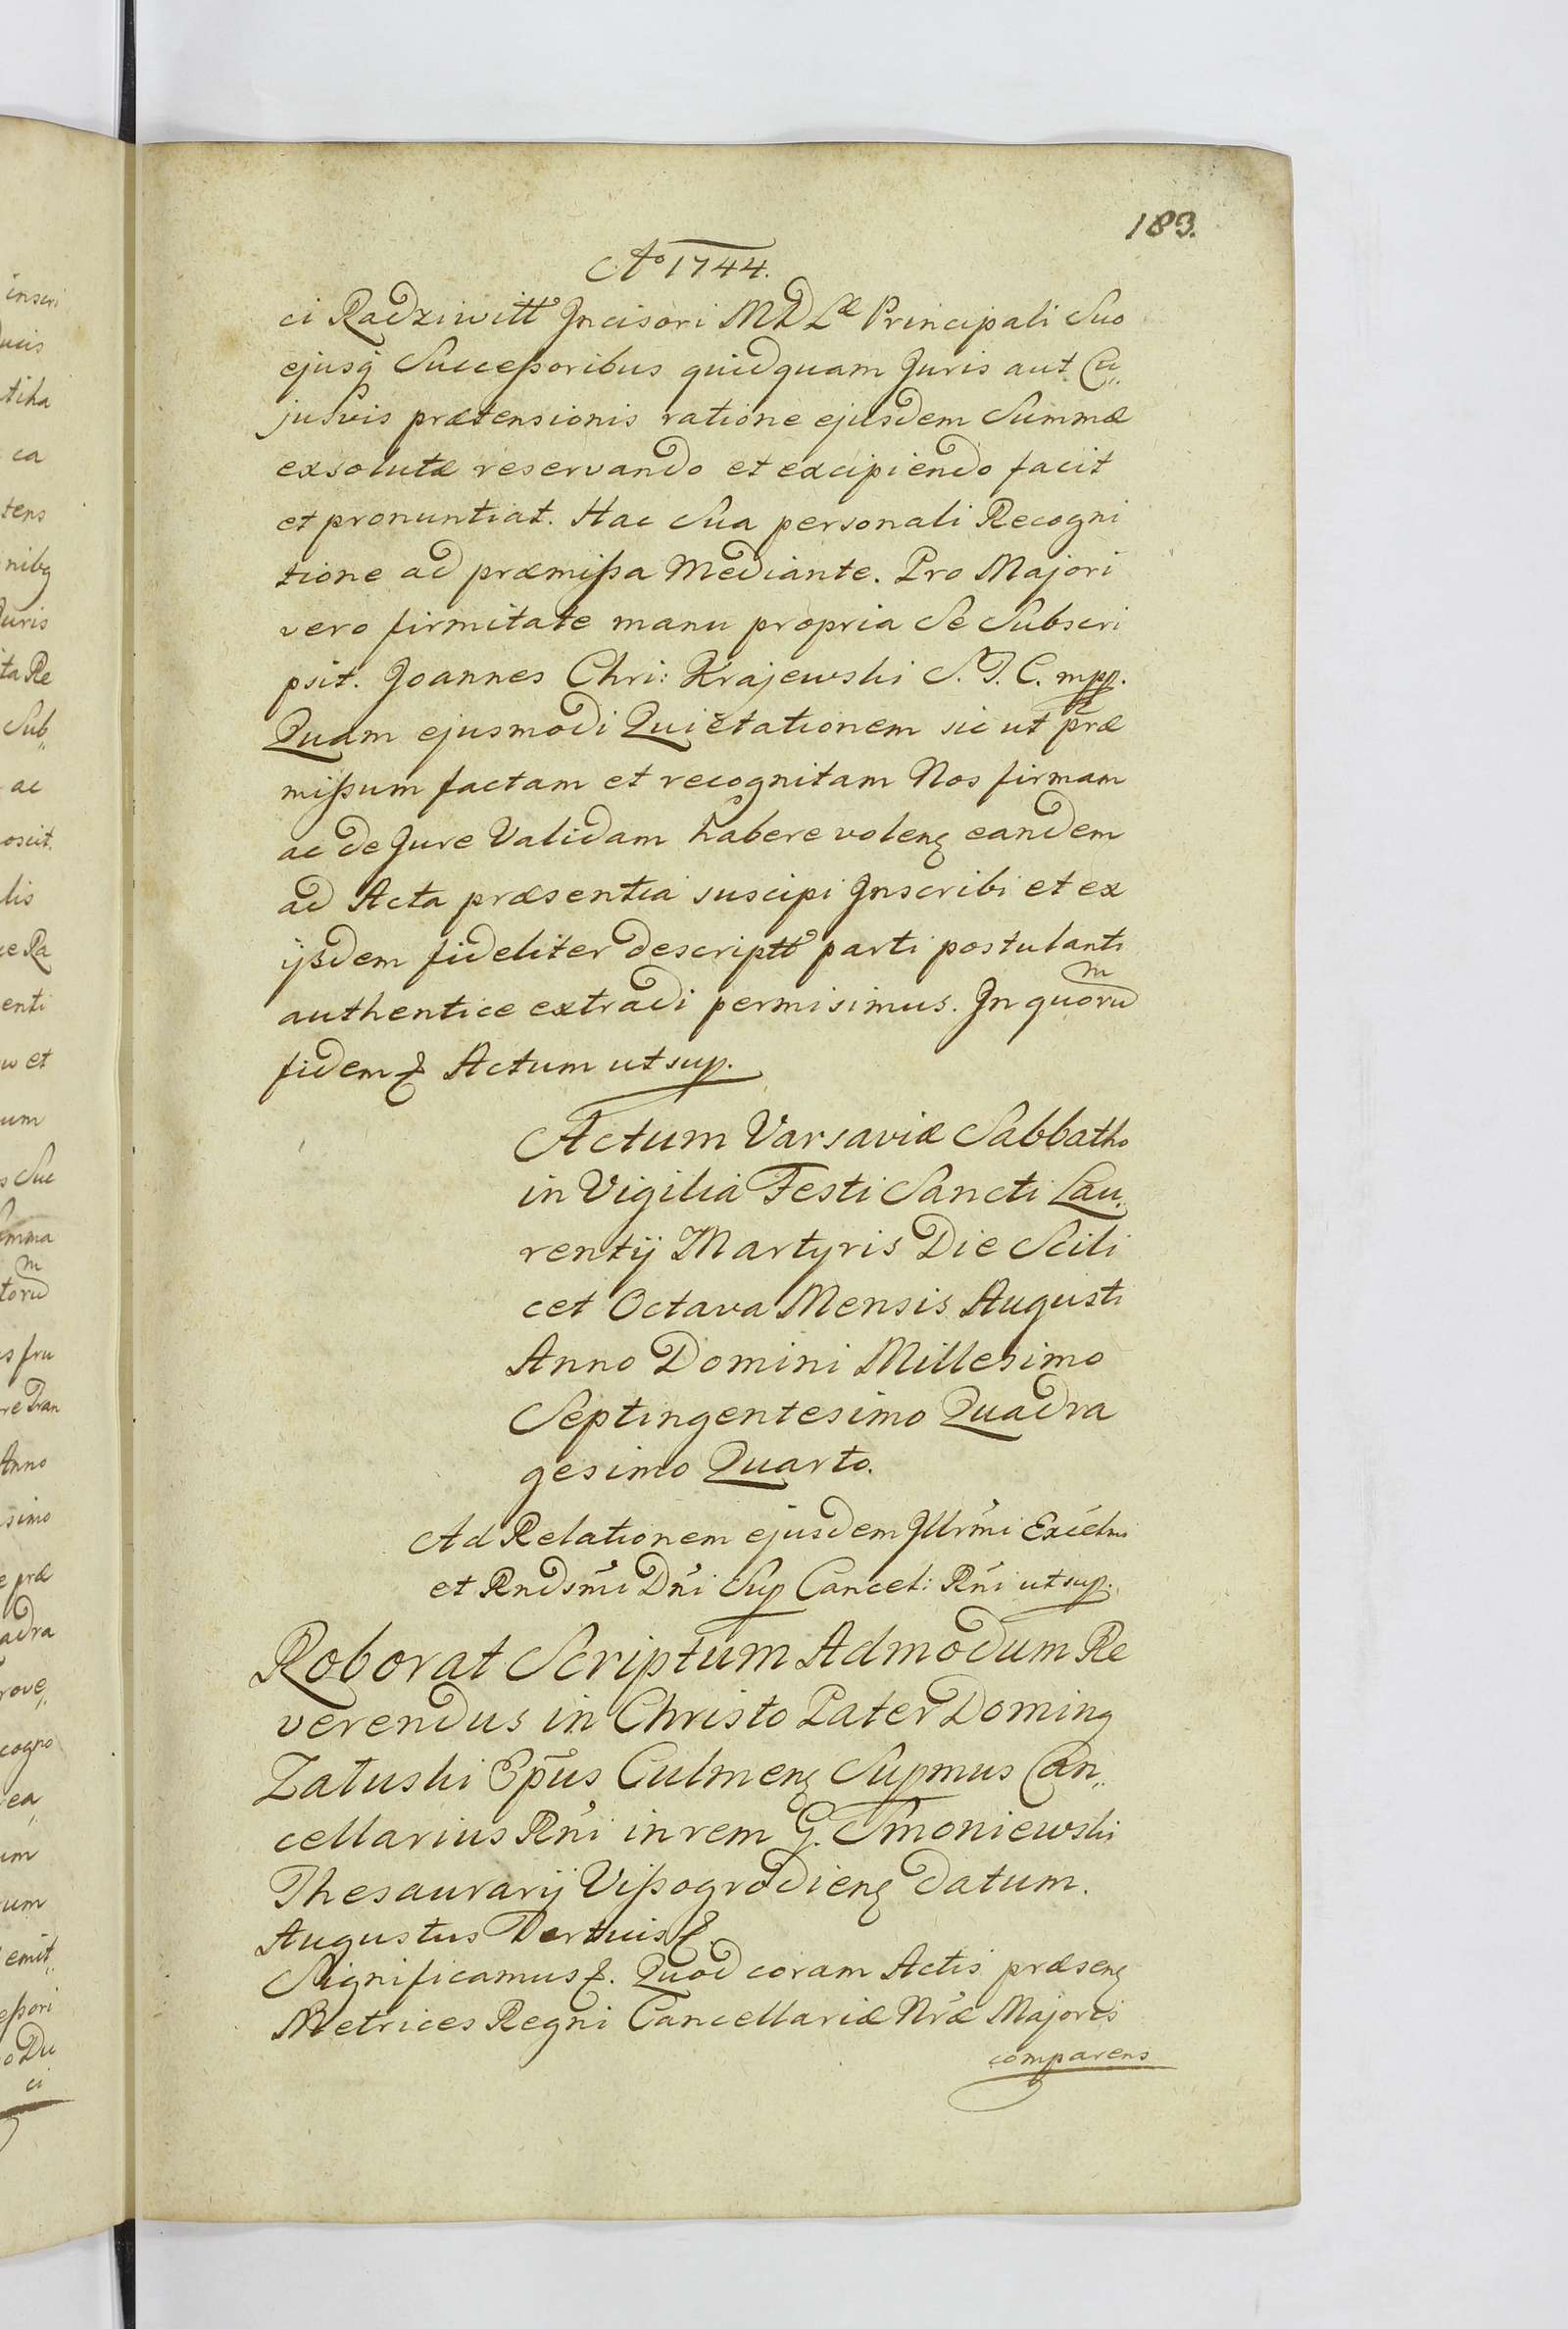 183.
Ao 1744.
ci Radziwiłł Incisori M D Læ Principali Suo
ejusq Succeßoribus quidquam Juris aut Cu„
jusvis prætensionis ratione ejusdem Summæ
exsolutæ reservando et excipiendo facit
et pronuntiat. Hac Sua personali Recogni
tione ad præmißa Mediante. Pro Majori
vero firmitate manu propria Se Subscri
psit. Joannes Chri: Krajewski S. J. C. mpp.
Quam ejusmodi Quietationem sic ut præ
mißum factam et recognitam Nos firmam
ac de Jure Validam habere volenꝫ eandem
ad Acta præsentia suscipi Inscribi et ex
ijsdem fideliter descriptt parti postulanti
authentice extradi permisimus. In quorum
fidem & Actum ut sup.
Actum Varsaviæ Sabbatho
in Vigilia Festi Sancti Lau„
rentij Martyris Die Scili
cet Octava Mensis Augusti
Anno Domini Millesimo
Septingentesimo Quadra
gesimo Quarto.
Ad Relationem ejusdem Illrmi Excelmi
et Rndsmi Dni Sup Cancel: Rni ut sup.
Roborat Scriptum Admodum Re
verendus in Christo Pater Dominꝰ
Załuski Epus Culmenꝫ Supmus Can„
cellarius Rni in rem G. Smoniewski
Thesaurarij Vißogrodienꝫ datum.
Augustus Dertius &.
Significamus &. Quod coram Actis præsenꝫ
Metrices Regni Cancellariæ Nræ Majoris
comparens
inseri
ucis
ca
tens
nibq
Juris
ta Re
Sub„
ac
oscit.
lis
ce Ra
enti
w et
um
s Suc
torum
s fru
re Tran
Anno
simo
e præ
adra
rove„
cogno
ea„
um
rum
eßori
o Du
ci